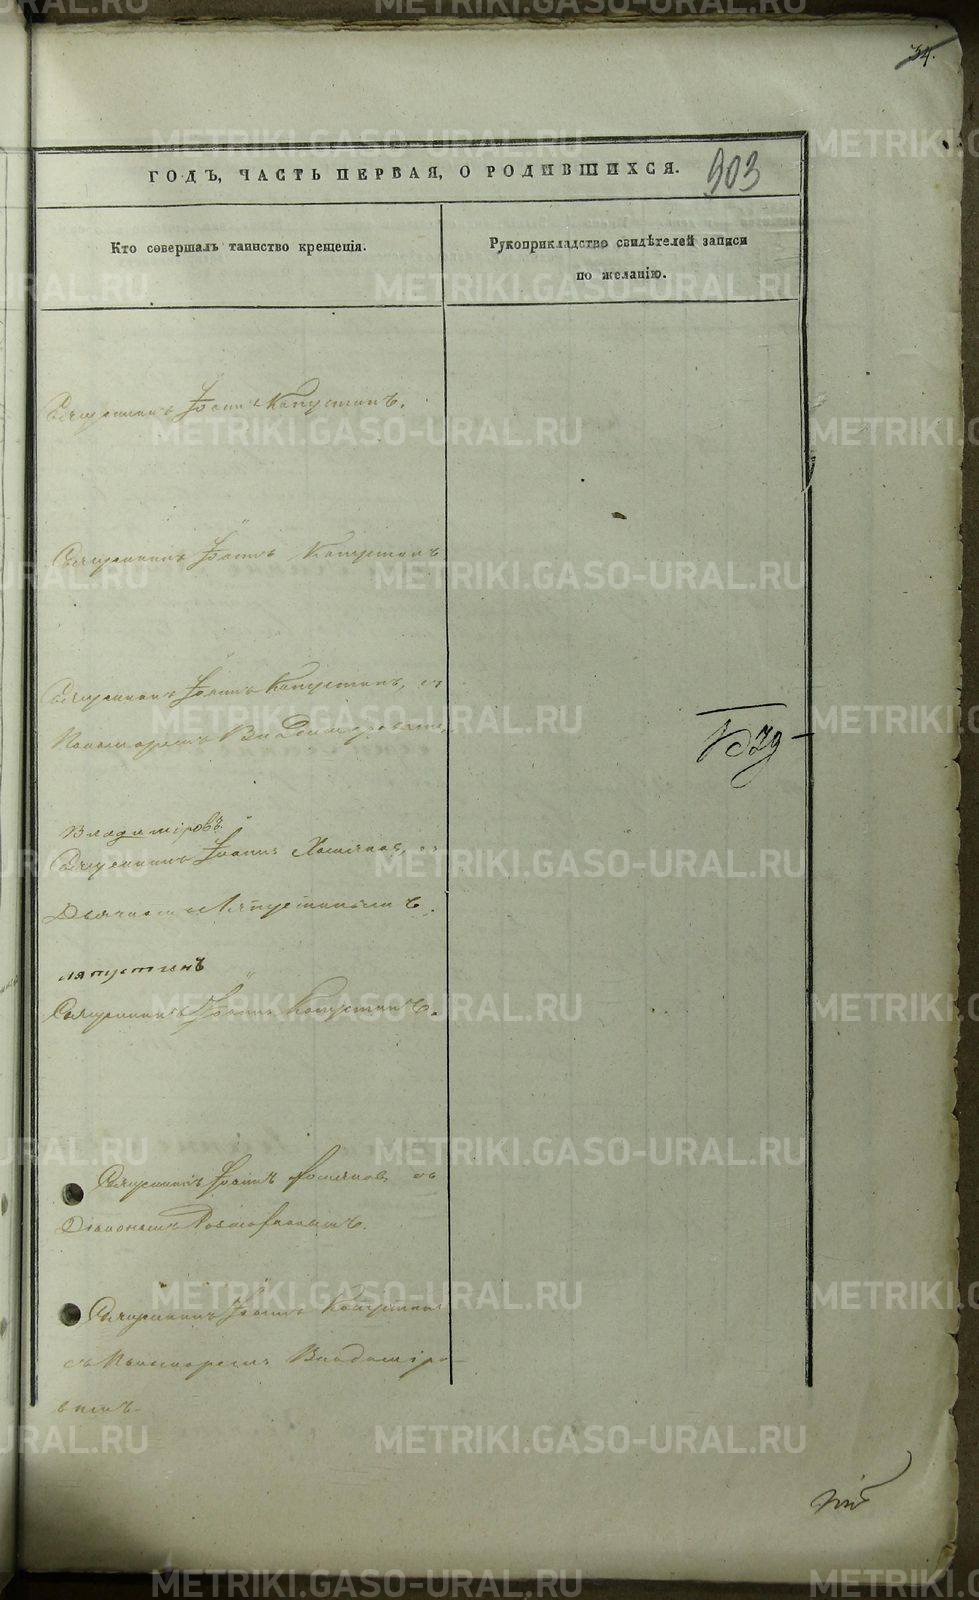 34.
ГОДЪ, ЧАСТЬ ПЕРВАЯ, О РОДИВШИХСЯ.
903
Кто совершалъ таинство крещенія.
Рукоприкладство свидѣтелей записи
по желанію.
Священникъ Іоаннъ Капустинъ.
Священникъ Іоаннъ Капустинъ
Священникъ Іоаннъ Капустинъ, съ
Пономаремъ
Владиміровъ
Священникъ Іоаннъ съ
Ляпустинымъ.
ляпустинъ
Священникъ Іоаннъ Капустинъ.
Священникъ Іоаннъ съ
Діакономъ
Священникъ Іоаннъ Капустинъ
съ Пономаремъ Владиміро-
вымъ.
METRIKI.GASO-URAL.RU